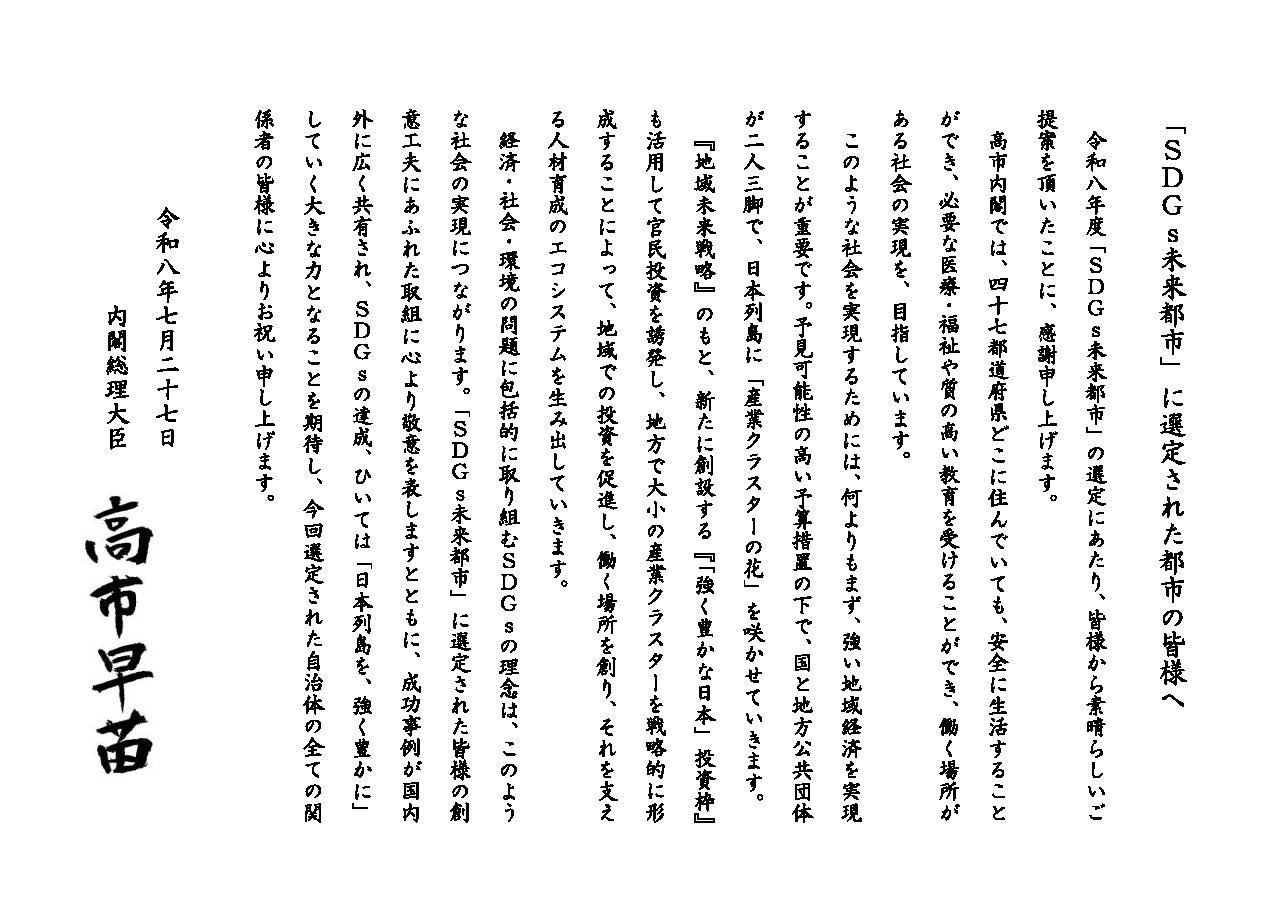 「ＳＤＧｓ未来都市」に選定された都市の皆様へ
令和八年度「ＳＤＧｓ未来都市」の選定にあたり、皆様から素晴らしいご
提案を頂いたことに、感謝申し上げます。
高市内閣では、四十七都道府県どこに住んでいても、安全に生活すること
ができ、必要な医療・福祉や質の高い教育を受けることができ、働く場所が
ある社会の実現を、目指しています。
このような社会を実現するためには、何よりもまず、強い地域経済を実現
することが重要です。予見可能性の高い予算措置の下で、国と地方公共団体
が二人三脚で、日本列島に「産業クラスターの花」を咲かせていきます。
『地域未来戦略』のもと、新たに創設する『「強く豊かな日本」投資枠』
も活用して官民投資を誘発し、地方で大小の産業クラスターを戦略的に形
成することによって、地域での投資を促進し、働く場所を創り、それを支え
る人材育成のエコシステムを生み出していきます。
経済・社会・環境の問題に包括的に取り組むＳＤＧｓの理念は、このよう
な社会の実現につながります。「ＳＤＧｓ未来都市」に選定された皆様の創
意工夫にあふれた取組に心より敬意を表しますとともに、成功事例が国内
外に広く共有され、ＳＤＧｓの達成、ひいては「日本列島を、強く豊かに」
していく大きな力となることを期待し、今回選定された自治体の全ての関
係者の皆様に心よりお祝い申し上げます。
令和八年七月二十七日
内閣総理大臣 高市早苗